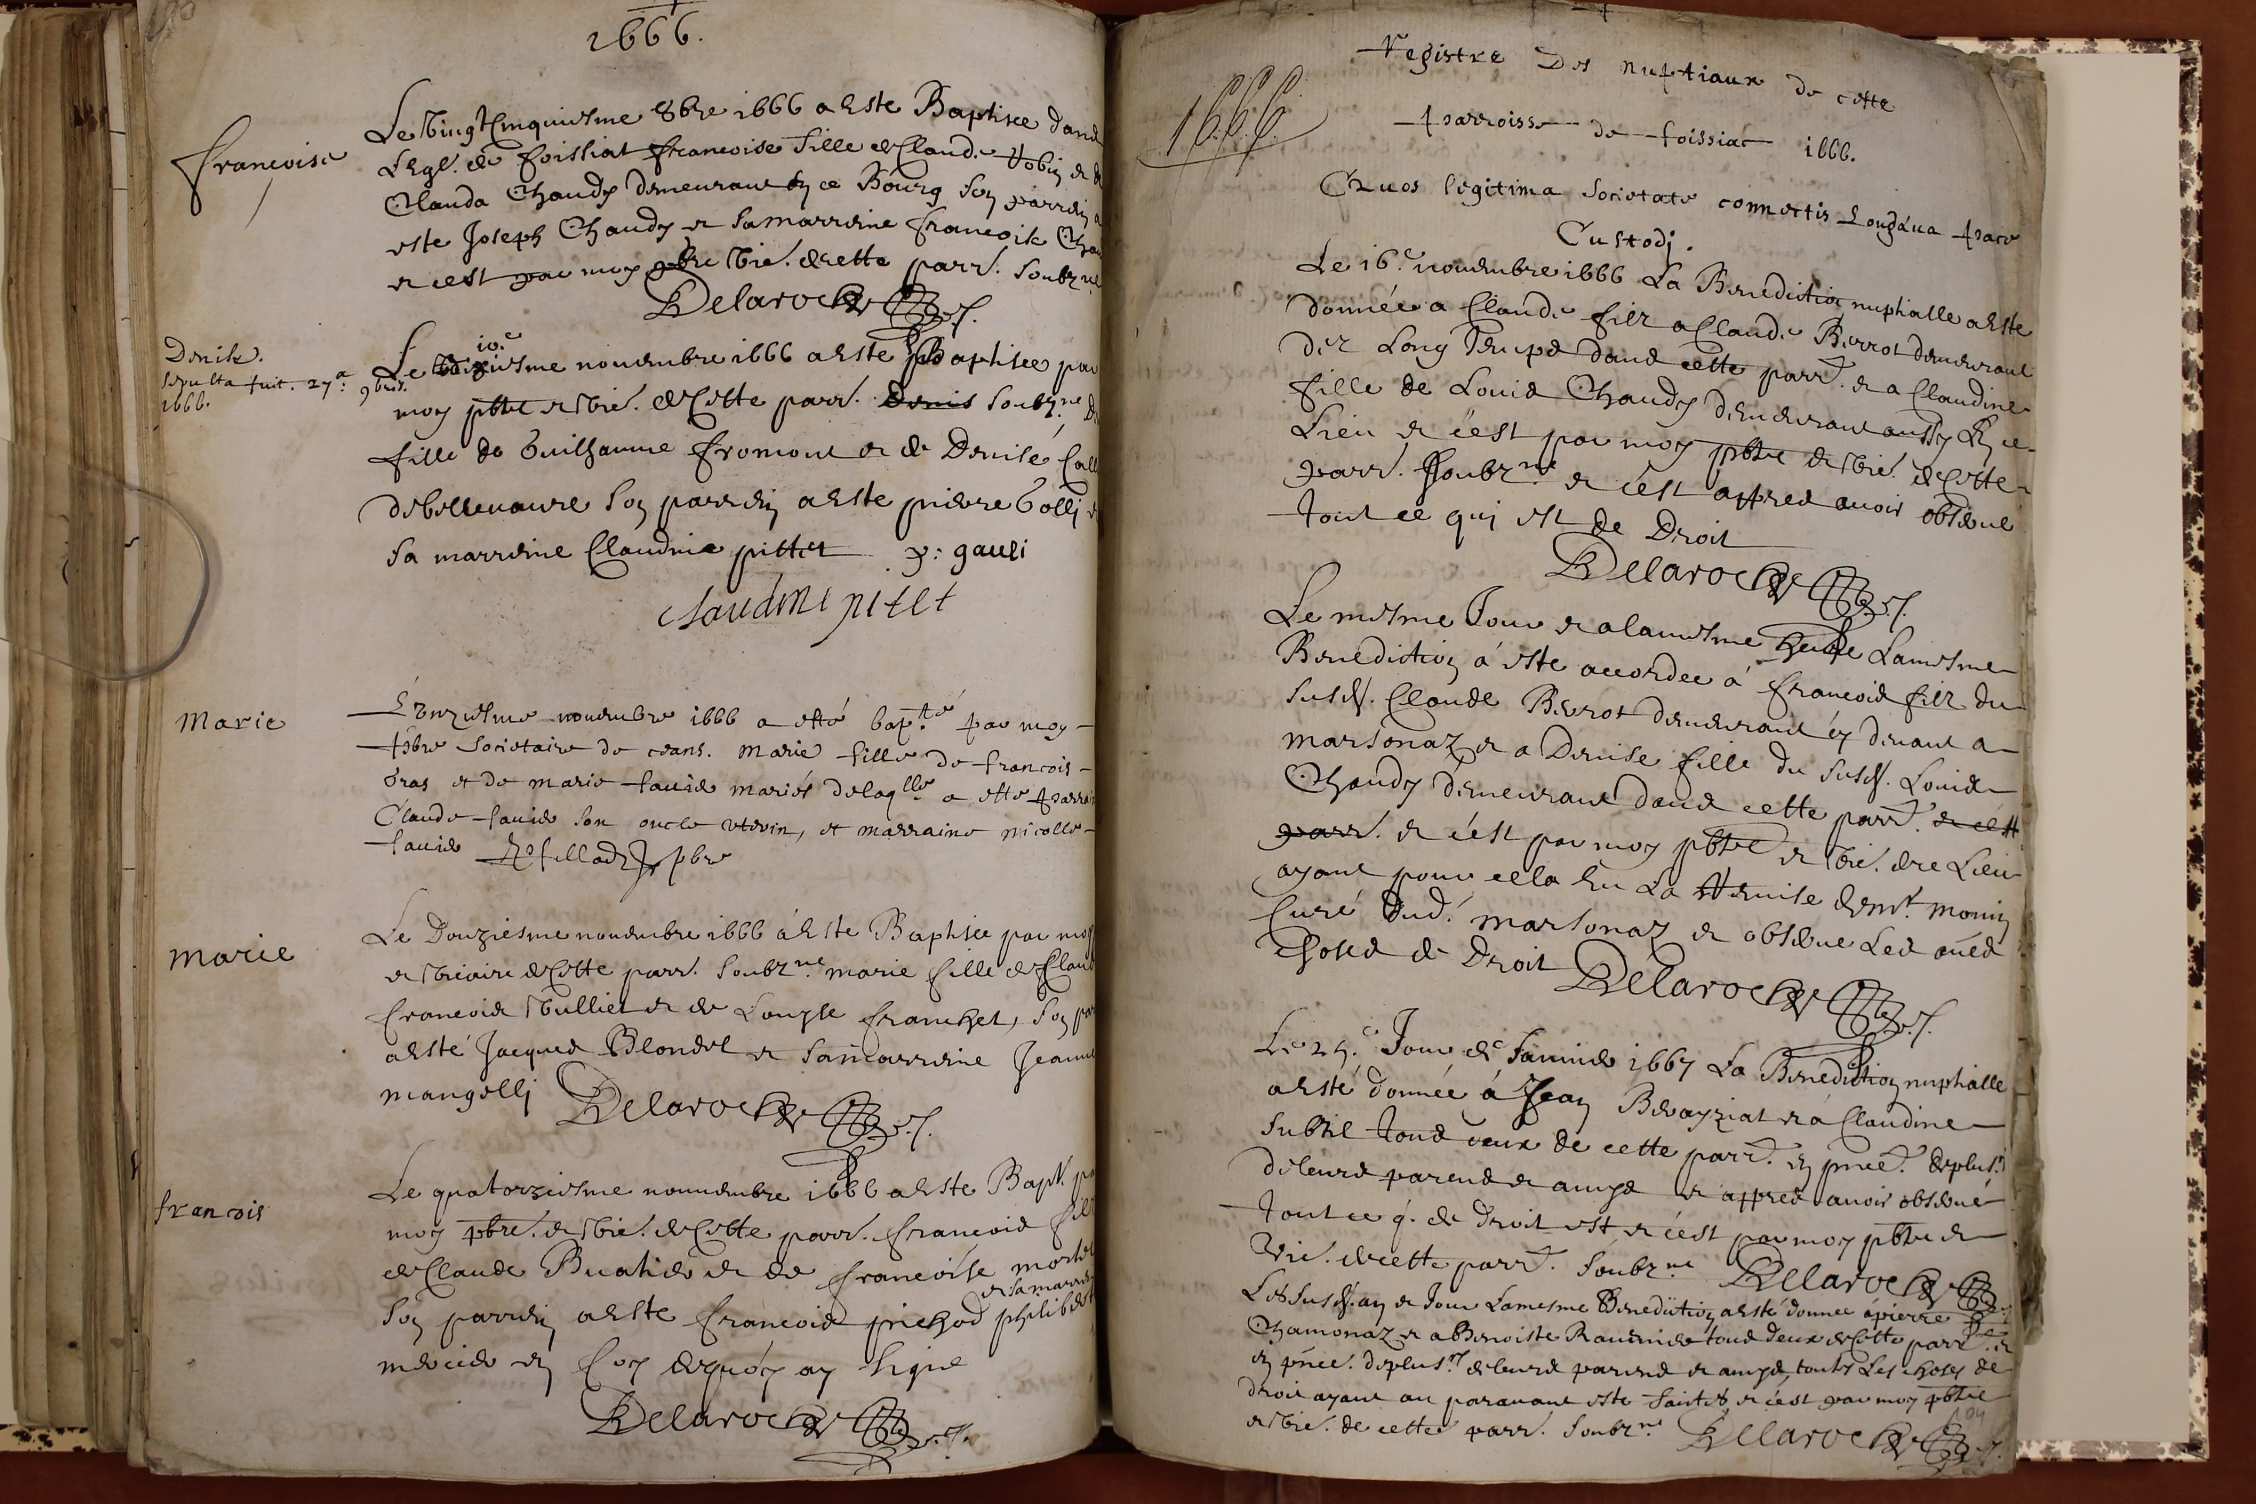 1666.
francoise
Le vingt Cinquiesme 8bre 1666 a Este Baptisee dans
LEgl. de foissiat francoise fille de Claude Gobin et de
Clauda Chaudy demeurant En ce Bourg Son parrein a
este Joseph Chaudy et Samarreine francoise Chau
et cest par moy pbre Vic. decette parr. Soubz.ne
Delaroche
Denise.
sepulta fuit. 27.a 9bris.
1666.
10.e
Le dixiesme nouembre 1666 a Este Baptisee par
moy pbre et Vic. de Cette parr. Denis Soubz.ne De
fille de Guilhaume fromont et de Denise Call
debelleuaure Son parrein a Este pierre Golly et
Sa marreine Claudine pittet p: gauli
claudine pitet
Marie
L'onziesme nouembre 1666 a esté bap.té par moy
pbre societaire de ceans. Marie fille de francois
Gras et de marie fauier mariés delaqlle a esté parrain
Claude fauier son oncle vterin, et marraine nicolle
fauier pbre
Marie
Le Douziesme nouembre 1666 a Este Baptisee par moy
et Vicaire de Cette parr. Soubz.ne marie fille de Claud
francois Vulliet et de Louyse franchet, Son par
a Esté Jacques Blondel et Samarreine Jeanne
mangelly Delaroche
francois
Le quatorziesme nouuembre 1666 a Este Bapt. pa
moy pbre. et Vic. de Cette parr. francois filz
de Claude Buatier et de francoise mortel
et sa marrein
Son parrein a Este francois prichod philiber
mercier En foy dequoy ay signe
Delaroche
Registre Des nuptiaux de cette
1666
parroisse de foissiac 1666.
Quos legitima societate connectis longaua pace
Custodj.
Le 16.e nouembre 1666 La Benediction nuptialle a Este
donnée a Claude filz a Claude Berrot demeurant
dez Long Temps dans cette parr. et a Claudine
fille de Louis Chaudy demeurant aussy En ce
Lieu et c'est par moy pbre et Vic. de Cette
parr. Soubz.ne et c'est appres auoir obserué
tout ce qui est de Droit
Delaroche
Le mesme Jour et alamesme heure Lamesme
Benediction a este accordee a francois filz du
susd. Claude Berrot demeurant cy deuant a
marsonaz et a Denise fille du susd. Louis
Chaudy demeurant dans cette parr. et cest
parr. et c'est par moy pbre et Vic. de ce Lieu
ayant pour cella Eu La Remise de mr. monin
Curé dud. marsonaz et obserué Les aues
choses de Droit Delaroche
Le 25.e Jour de Januier 1667 La Benediction nuptialle
a Esté donnée á Jean Beuayziat et á Claudine
Subtil tous deux de cette parr. En pnce. deplus.rs
deleurs parens et amys et appres auoir obserué
tout ce q. de Droit est et c'est par moy pbre et
Vic. decette parr. Soubz.ne Delaroche
Les susd. an et Jour Lamesme Benediction a Esté donnee a pierre
Chamonaz et a Benoiste Rauinier tous Deux de Cette parr. et
En pnce. deplus.rs deleurs parens et amys, toutes Les choses de
Droit ayant au parauant este faites et c'est par moy pbre
et Vic. de cette parr. Soubz.ne Delaroche
104